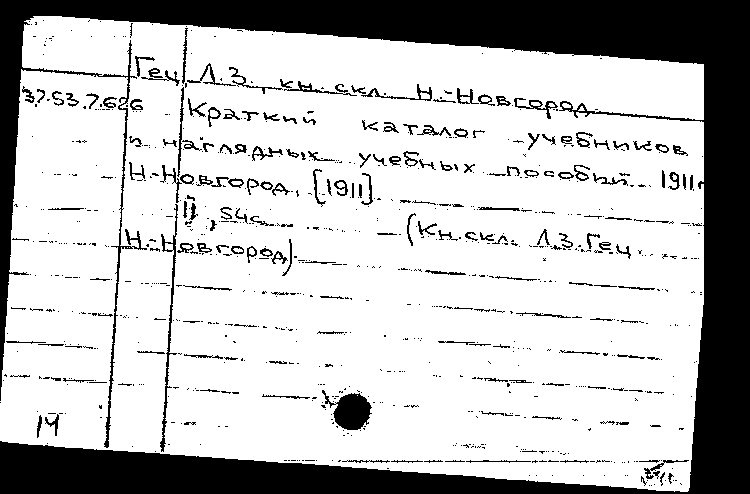 Гец, Л.З., кн. скл. Н.-Новгород.
37.53.7.626 Краткий каталог учебников
и наглядных учебных пособий 1911г
Н.-Новгород, [1911].
II, 54с. (Кн. скл. Л.З. Гец.
Н.-Новгород).
14